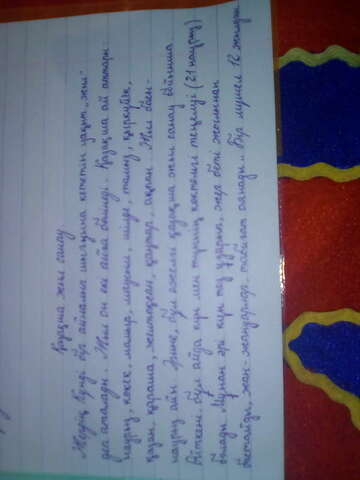 Қазақша жыл санау
Жердің Күнді бір айналып шығуына кететін уақыт "жыл"
деп аталады. Жыл он екі айға бөлінеді. Қазақша ай аттары:
наурыз, көкек, мамыр, маусым, шілде, тамыз, қыркүйек,
қазан, қараша, желтоқсан, қаңтар, ақпан. Жыл басы -
наурыз айы. Әрине, бұл ежелгі қазақша жыл санау бойынша.
Өйткені бұл айда күн мен түннің теңелуі (21 наурыз)
болады. Мұнан әрі күн ұзарып, жер беті жылынып
бастайды, жан-жануарлар, табиғат оянады. Бір мүшел 12 жылдан